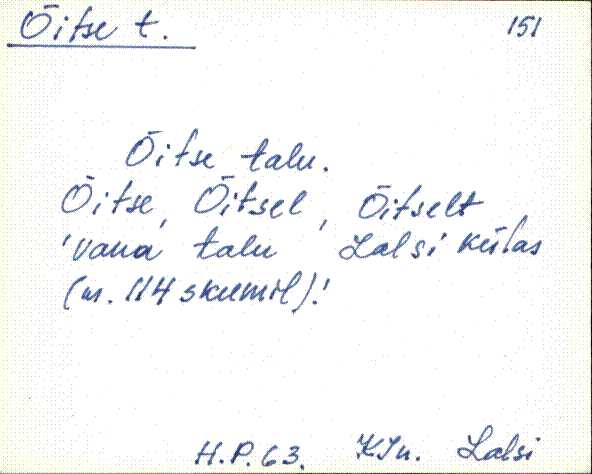 Õitse t. 151
Õitse talu.
Õitse, Õitsel, Õitselt
'vana talu Lalsi külas
(nr. 114 skeemil)!
H.P. 63. KJn. Lalsi